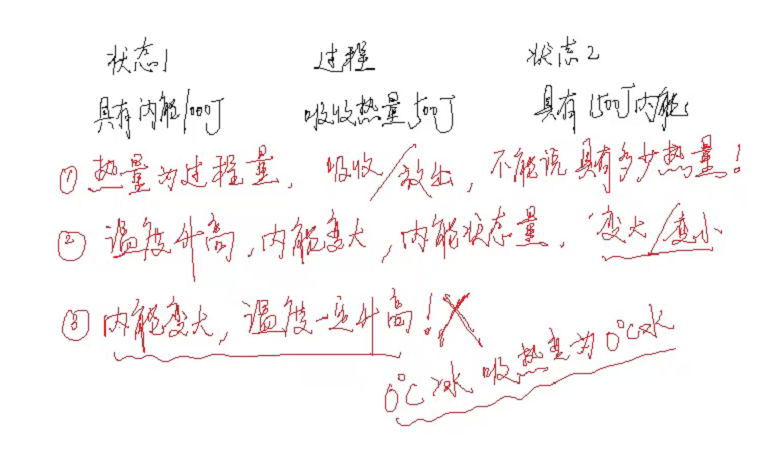 状态1 过程 状态2
具有内能1000J 吸收热量500J 具有1500J内能
①热量为过程量，吸收/放出，不能说具有多少热量！
②温度升高，内能变大，内能状态量，变大/变小
③内能变大，温度一定升高！×
0°C冰吸热变为0°C水